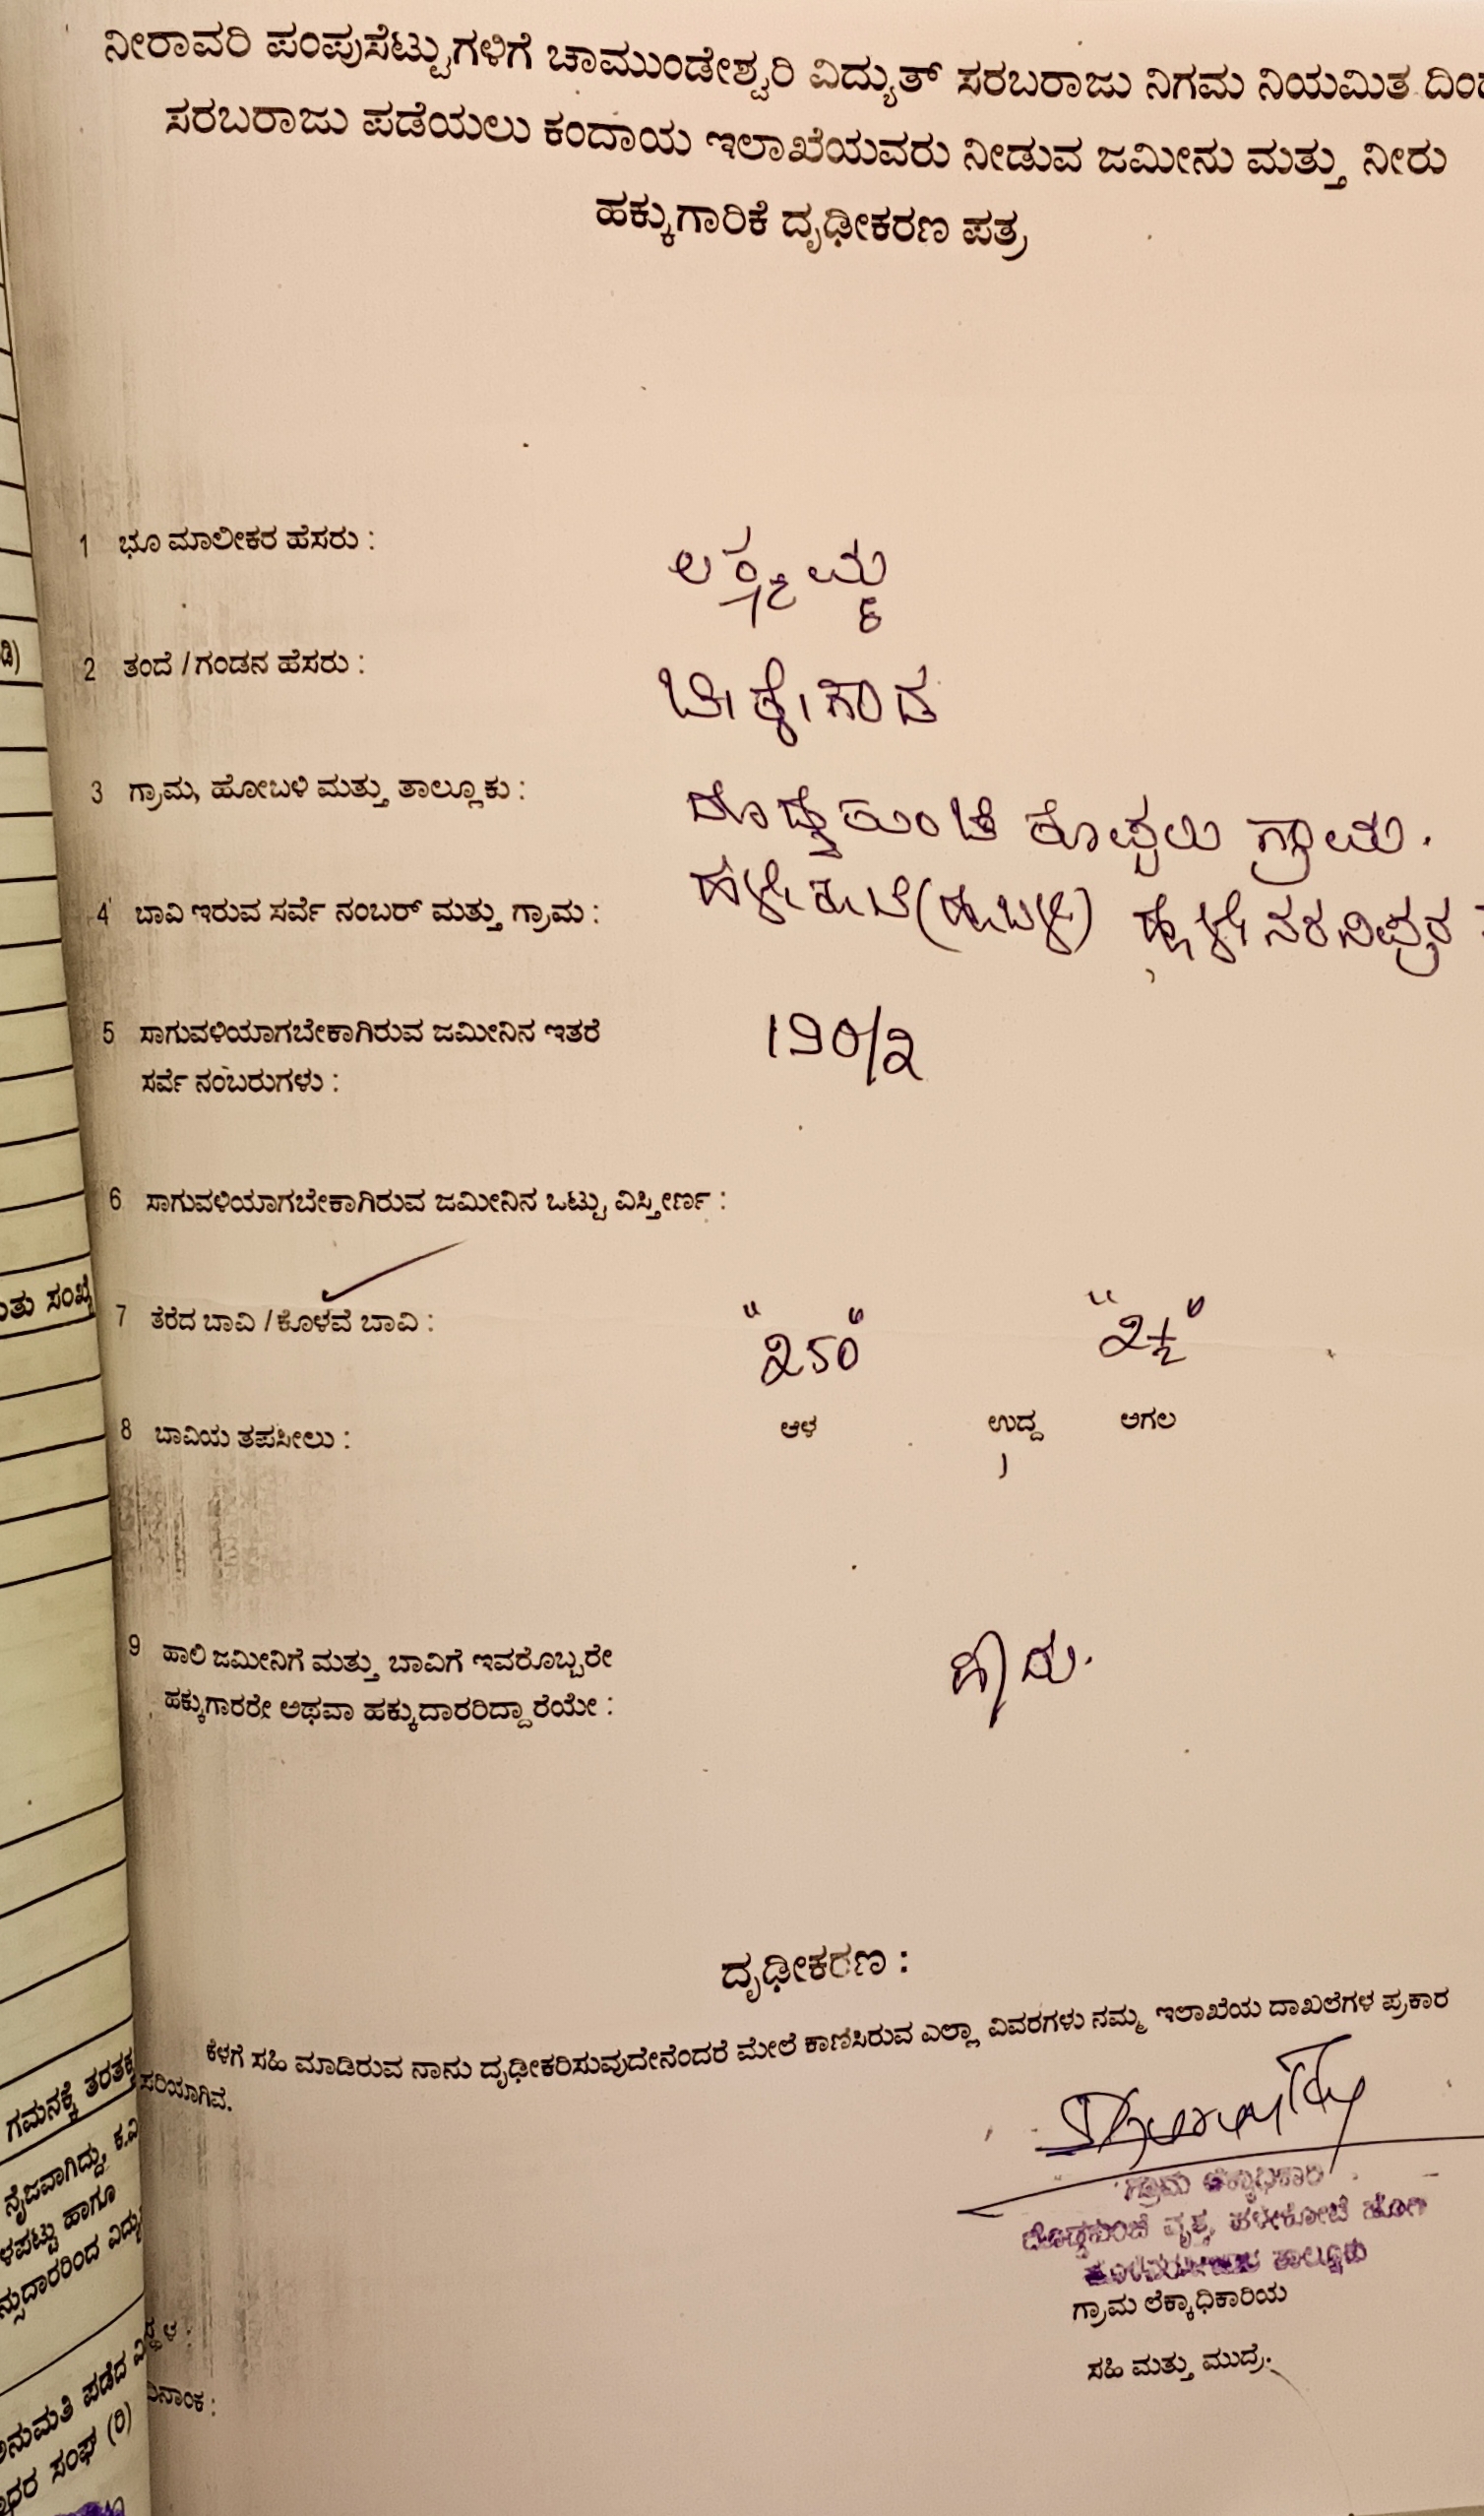 ನೀರಾವರಿ ಪಂಪುಸೆಟ್ಟುಗಳಿಗೆ ಚಾಮುಂಡೇಶ್ವರಿ ವಿದ್ಯುತ್ ಸರಬರಾಜು ನಿಗಮ ನಿಯಮಿತ ದಿಂದ
ಸರಬರಾಜು ಪಡೆಯಲು ಕಂದಾಯ ಇಲಾಖೆಯವರು ನೀಡುವ ಜಮೀನು ಮತ್ತು ನೀರು
ಹಕ್ಕುಗಾರಿಕೆ ದೃಢೀಕರಣ ಪತ್ರ
1 ಭೂ ಮಾಲೀಕರ ಹೆಸರು : ಲಕ್ಷ್ಮಮ್ಮ
2 ತಂದೆ / ಗಂಡನ ಹೆಸರು : ಚಿಕ್ಕೇಗೌಡ
3 ಗ್ರಾಮ, ಹೋಬಳಿ ಮತ್ತು ತಾಲ್ಲೂಕು : ಕೊಪ್ಪಲು ಗ್ರಾಮ.
4 ಬಾವಿ ಇರುವ ಸರ್ವೆ ನಂಬರ್ ಮತ್ತು ಗ್ರಾಮ :
5 ಸಾಗುವಳಿಯಾಗಬೇಕಾಗಿರುವ ಜಮೀನಿನ ಇತರೆ 190/2
ಸರ್ವೆ ನಂಬರುಗಳು :
6 ಸಾಗುವಳಿಯಾಗಬೇಕಾಗಿರುವ ಜಮೀನಿನ ಒಟ್ಟು ವಿಸ್ತೀರ್ಣ :
7 ತೆರೆದ ಬಾವಿ / ಕೊಳವೆ ಬಾವಿ : "250" "2½"
8 ಬಾವಿಯ ತಪಸೀಲು : ಆಳ ಉದ್ದ ಅಗಲ
9 ಹಾಲಿ ಜಮೀನಿಗೆ ಮತ್ತು ಬಾವಿಗೆ ಇವರೊಬ್ಬರೇ
ಹಕ್ಕುಗಾರರೇ ಅಥವಾ ಹಕ್ಕುದಾರರಿದ್ದಾರೆಯೇ :
ದೃಢೀಕರಣ :
ಕೆಳಗೆ ಸಹಿ ಮಾಡಿರುವ ನಾನು ದೃಢೀಕರಿಸುವುದೇನೆಂದರೆ ಮೇಲೆ ಕಾಣಿಸಿರುವ ಎಲ್ಲಾ ವಿವರಗಳು ನಮ್ಮ ಇಲಾಖೆಯ ದಾಖಲೆಗಳ ಪ್ರಕಾರ
ಸರಿಯಾಗಿವೆ.
ಗ್ರಾಮ ಲೆಕ್ಕಾಧಿಕಾರಿ
ಗ್ರಾಮ ಲೆಕ್ಕಾಧಿಕಾರಿಯ
ಸಹಿ ಮತ್ತು ಮುದ್ರೆ.
ಗಮನಕ್ಕೆ
ನೈಜವಾಗಿದ್ದು,
ಹಾಗೂ
ಪಡೆದ
ಸಂಘ (ರಿ)